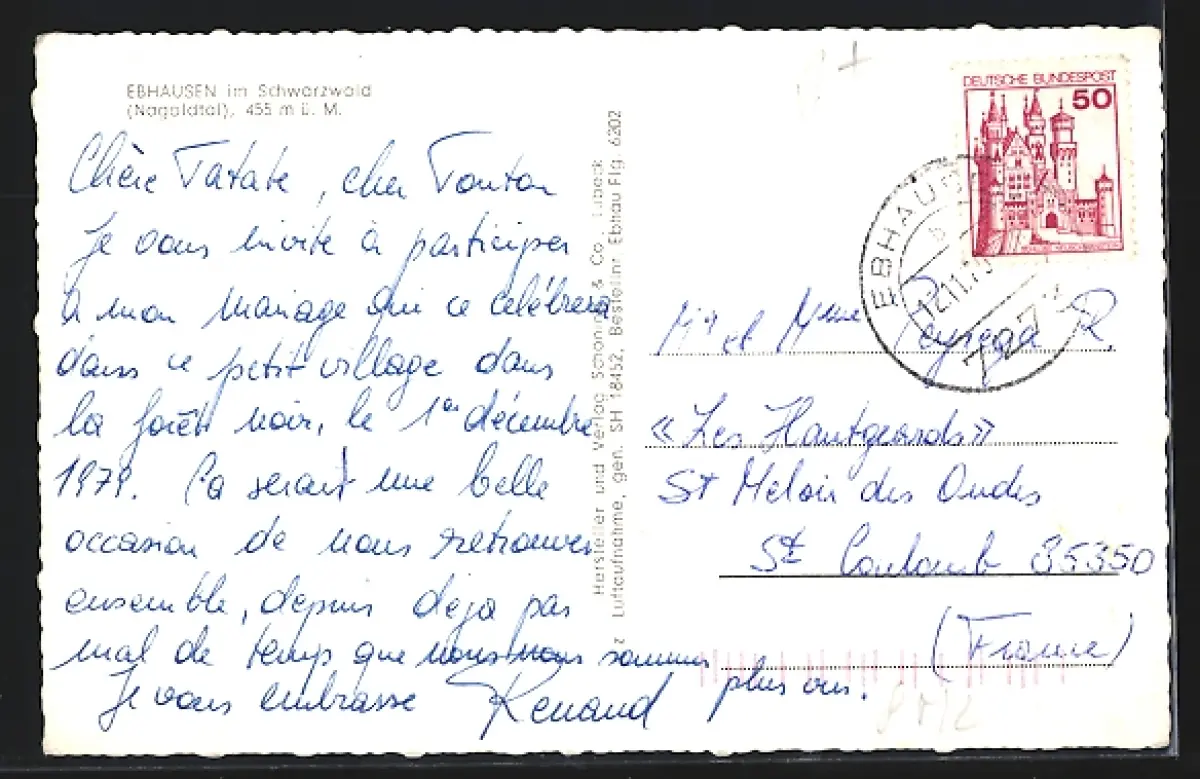 EBHAUSEN im Schwarzwald
(Nagoldtal), 455 m ü. M.
Chère Tatate, cher Tonton
Je vous invite à participer
à mon mariage qui ce celébrera
dans ce petit village dans
la forêt noir, le 1er décembre
1979. Ça serait une belle
occasion de nous retrouver
ensemble, depuis déja pas
mal de temps que nous nous sommes
plus vus.
Je vous embrasse Renaud
Hersteller und Verlag Schöning & Co., Lübeck
Luftaufnahme, gen. SH 18452, Bestellnr. Ebhau Flg. 6202
DEUTSCHE BUNDESPOST
50
EBHAUS
b
12.11.79
727
Mr et Mme Peyrega R.
«Les Hautgeards»
St Méloir des Ondes
St Coulomb 35350
(France)